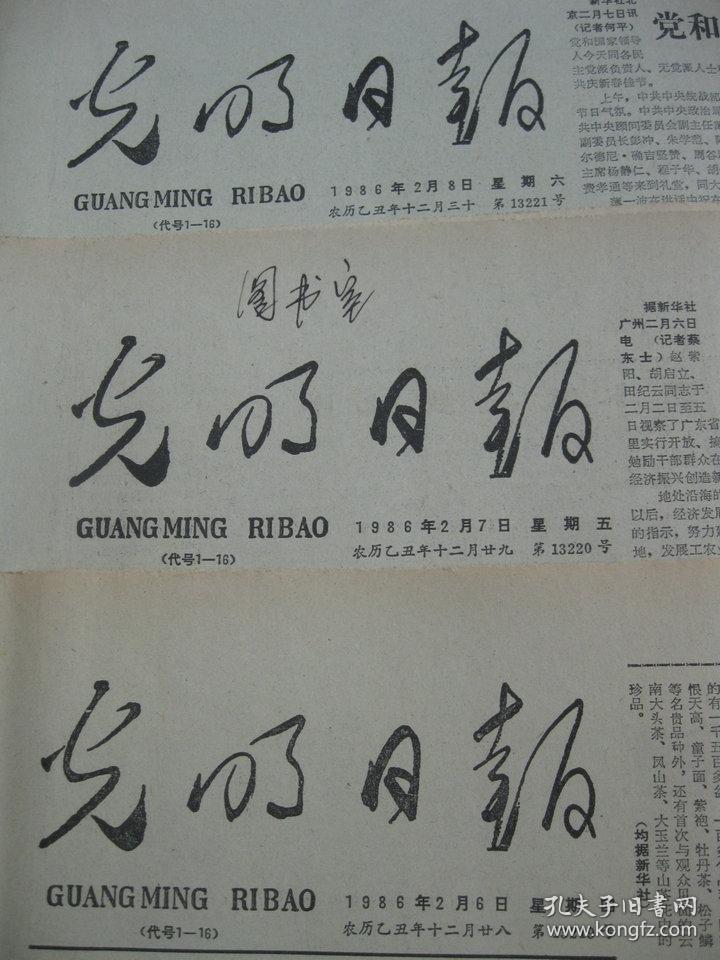 光明日报
GUANGMING RIBAO
(代号1—16)
1986年2月8日 星期六
农历乙丑年十二月三十 第13221号
新华社北
京二月七日讯
(记者何平)
党和国家领导
人今天同各民
主党派负责人、无党派人士
共庆新春佳节。
上午,中共中央统战部
节日气氛。中共中央政治局
共中央顾问委员会副主任
副委员长彭冲、朱学范、
尔德尼·确吉坚赞、周谷
主席杨静仁、程子华、胡
费孝通等来到礼堂,同大
薄一波在讲话中祝
党和
图书室
光明日报
GUANGMING RIBAO
(代号1—16)
1986年2月7日 星期五
农历乙丑年十二月廿九 第13220号
据新华社
广州二月六日
电 (记者蔡
东士)赵紫
阳、胡启立、
田纪云同志于
二月二日至五
日视察了广东省
里实行开放、搞
勉励干部群众在
经济振兴创造新
地处沿海的
以后,经济发展
的指示,努力
地,发展工农业
光明日报
GUANGMING RIBAO
(代号1—16)
1986年2月6日 星期
农历乙丑年十二月廿八
的有一千五百多盆
恨天高、童子面、紫袍、牡丹茶、松子鳞
等名贵品种外,还有首次与观众见面的云
南大头茶、凤山茶、大玉兰等山茶花中的
珍品。
(均据新华社)
孔夫子旧书网
www.kongfz.com